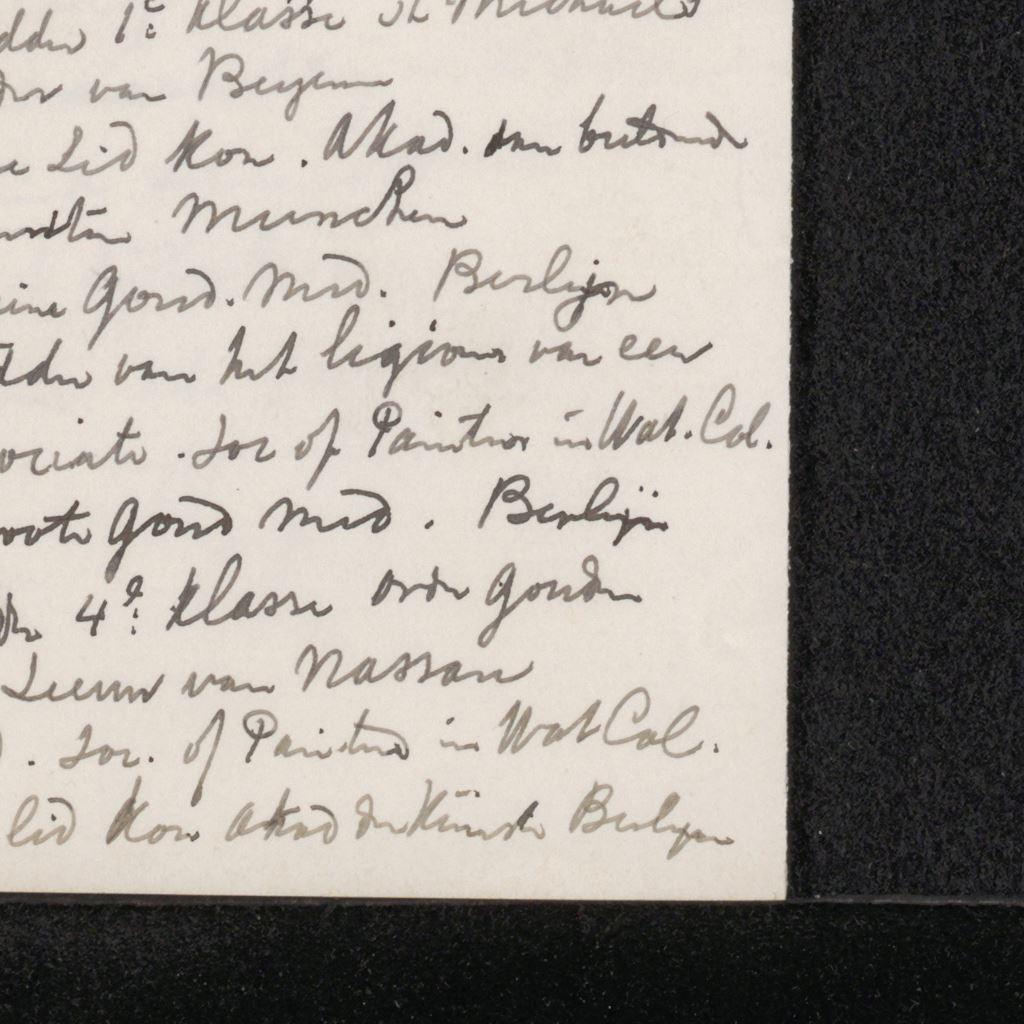 dder 1e Klasse St Michaels
der van Beyeren
e Lid Kon. Akad. van beeldende
München
eine Goud. Med. Berlijn
idder van het legioen van eer
ociate. Soc of Painters in Wat. Col.
roote goud med. Berlijn
der 4e Klasse orde Gouden
Leeuw van Nassau
. Soc. of Painters in Wat Col.
lid Kon Akad der Künste Berlijn